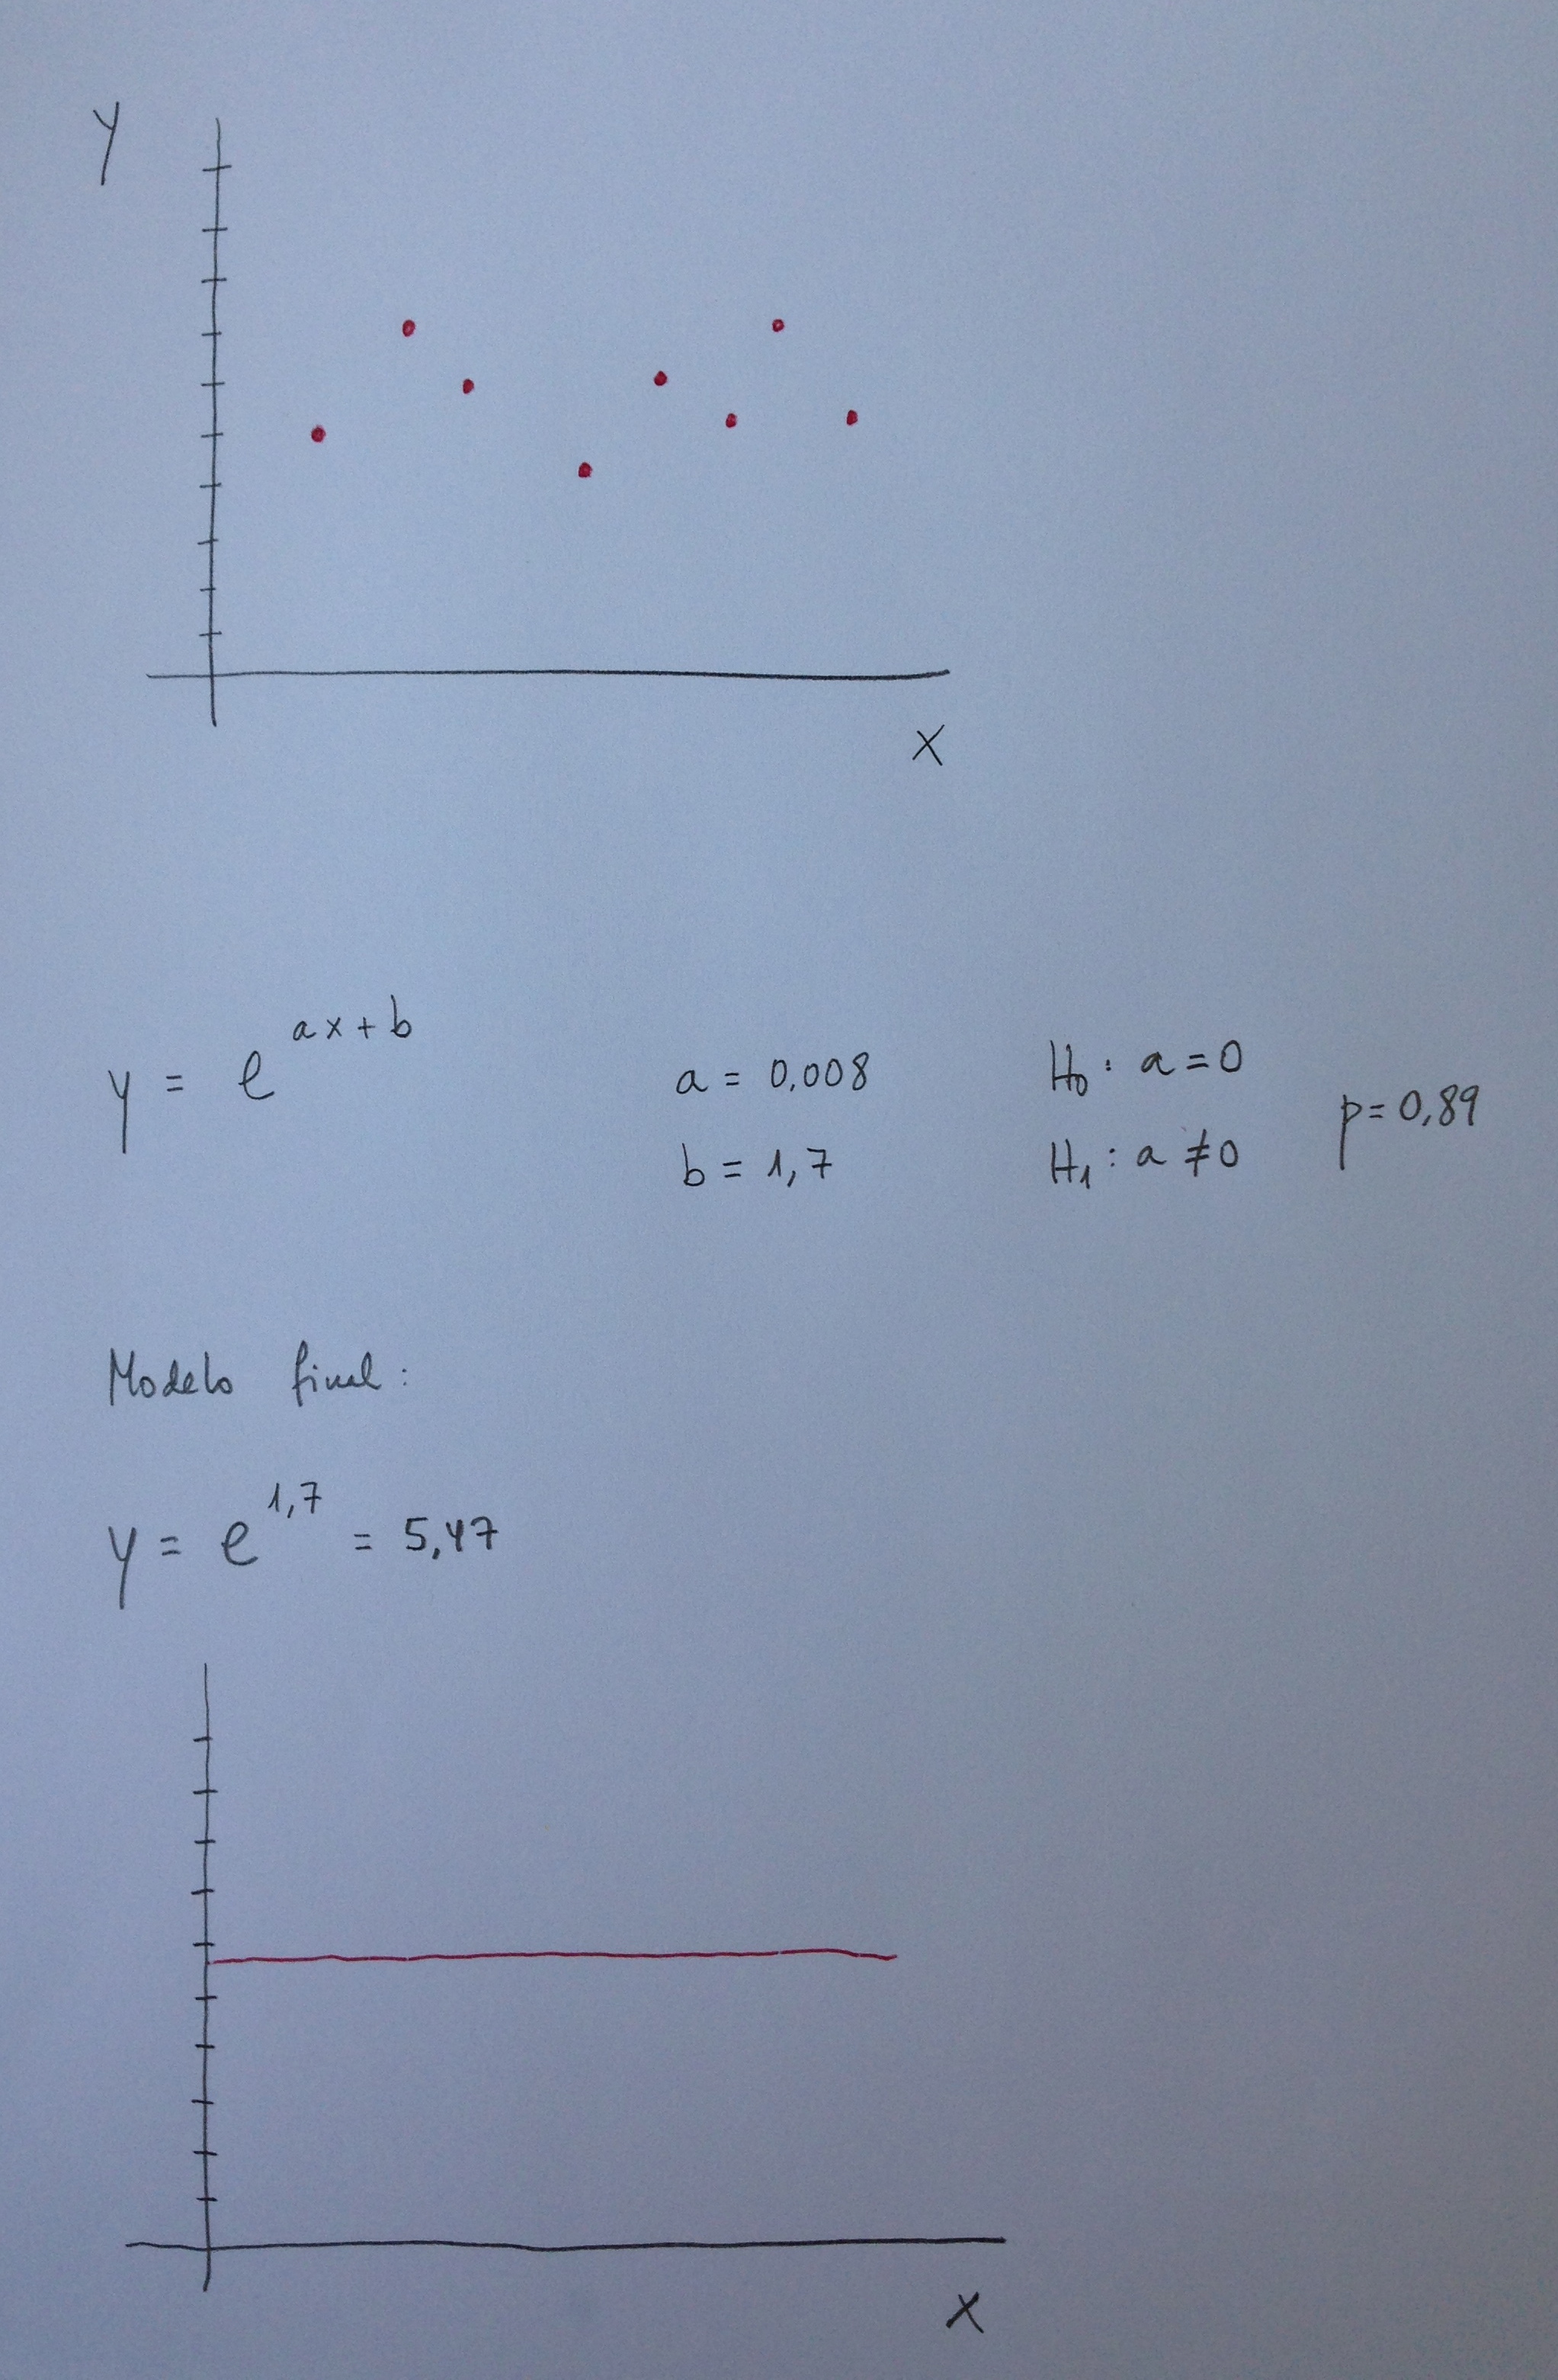 y
x
y = e^{ax+b}
a = 0,008
b = 1,7
H₀: a = 0
H₁: a ≠ 0
p = 0,89
Modelo final:
y = e^{1,7} = 5,47
x